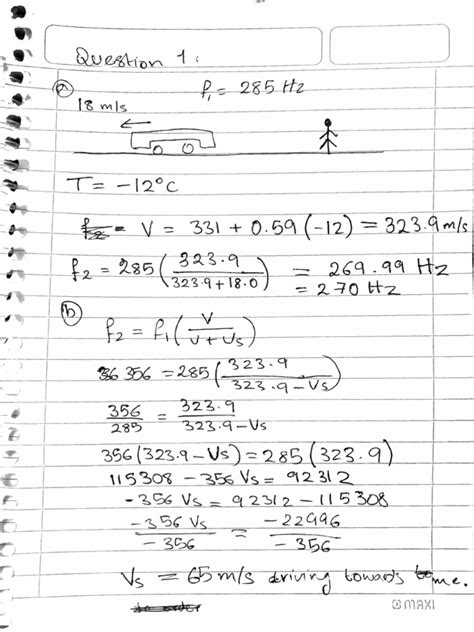 Question 1:
(a) f₁ = 285 Hz
18 m/s
T = -12°C
V = 331 + 0.59 (-12) = 323.9 m/s
f₂ = 285 (323.9 / 323.9 + 18.0) = 269.99 Hz
= 270 Hz
(b)
f₂ = f₁ (V / V + Vs)
356 = 285 (323.9 / 323.9 - Vs)
356 / 285 = 323.9 / 323.9 - Vs
356 (323.9 - Vs) = 285 (323.9)
115308 - 356 Vs = 92312
-356 Vs = 92312 - 115308
-356 Vs / -356 = -22996 / -356
Vs = 65 m/s driving towards me.
MAXI